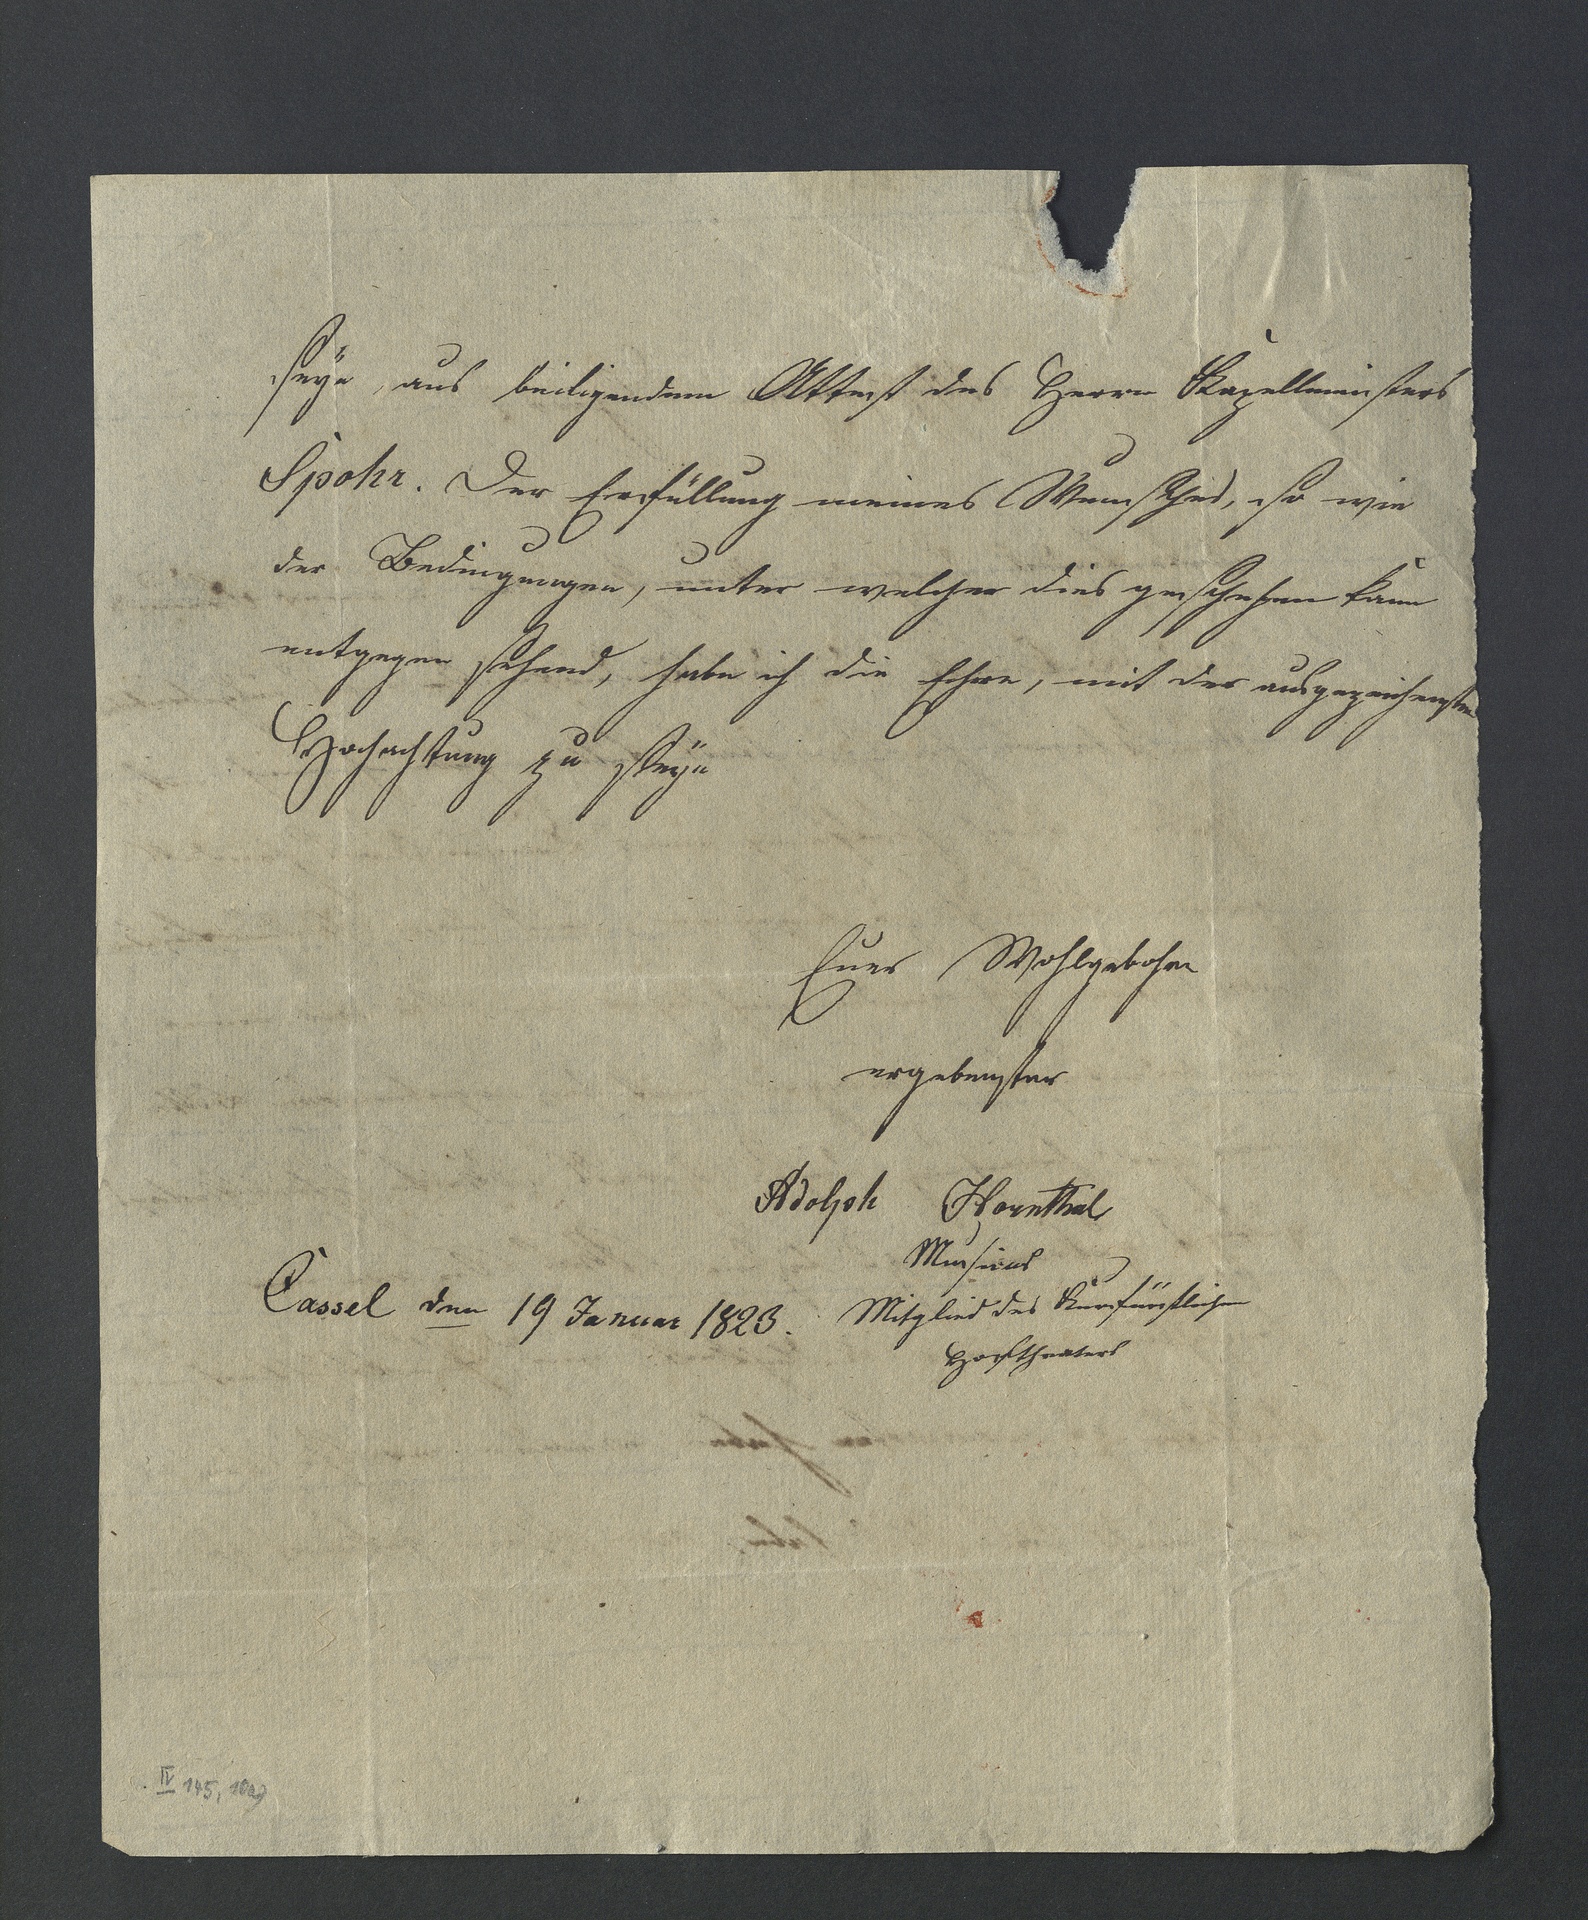 seyn, aus beiligendem Attest des Herrn Kapellmeisters
Spohr. Der Erfüllung meines Wunsches, so wie
der Bedingungen, unter welcher dies geschehen kann
entgegen sehend, habe ich die Ehre, mit der ausgezeichensten
Hochachtung zu seyn
Euer Wohlgebohrn
ergebenster
Adolph Hornthal
Musicus
Cassel den 19 Januar 1823. Mitglied des Kurfürstlichen
Hoftheaters
IV 145,